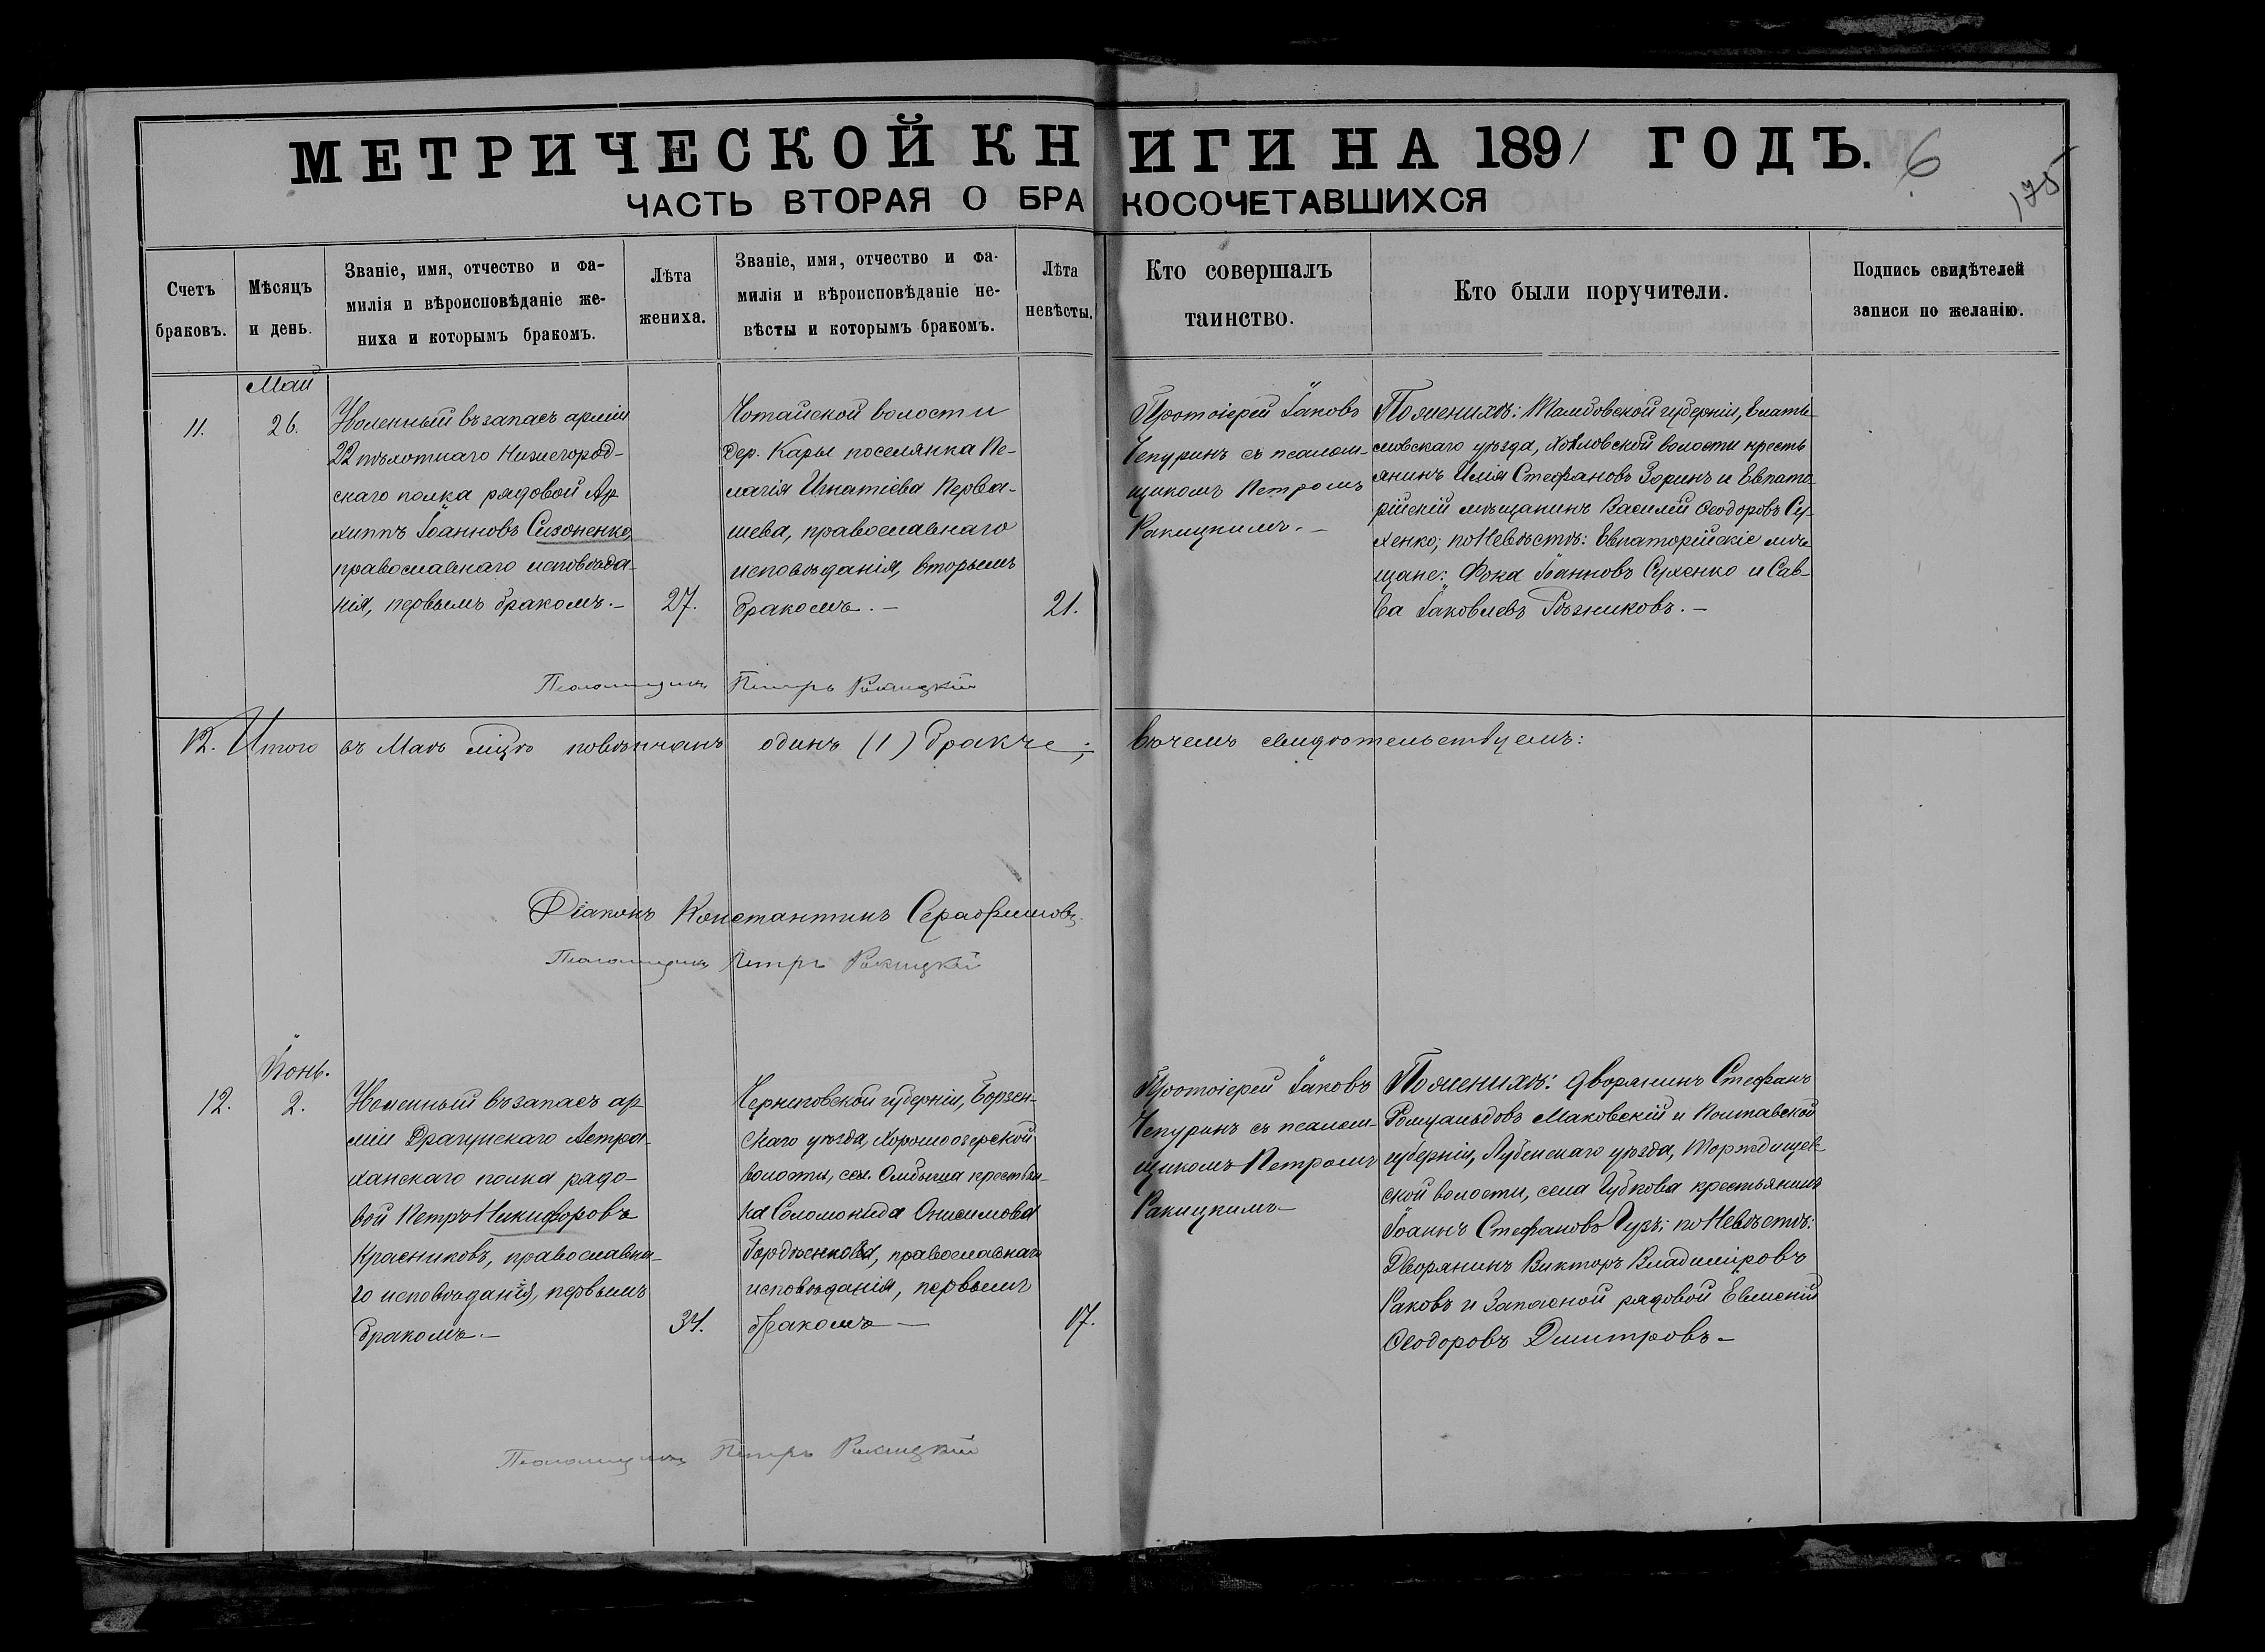 МЕТРИЧЕСКОЙ КНИГИ НА 1891 ГОДЪ.
6
175
ЧАСТЬ ВТОРАЯ О БРАКОСОЧЕТАВШИХСЯ
Счетъ
браковъ.
Мѣсяцъ
и день.
Званіе, имя, отчество и фа-
милія и вѣроисповѣданіе же-
ниха и которымъ бракомъ.
Лѣта
жениха.
Званіе, имя, отчество и фа-
милія и вѣроисповѣданіе не-
вѣсты и которымъ бракомъ.
Лѣта
невѣсты.
Кто совершалъ
таинство.
Кто были поручители.
Подпись свидѣтелей
записи по желанію.
11.
Май
26.
Уволенный въ запасъ арміи
22 пѣхотнаго Нижегород-
скаго полка рядовой Ар
хиппъ Іоанновъ Сизоненко,
православнаго исповѣда-
нія, первымъ бракомъ.-
27.
волости
дер. Кары поселянка Пе-
лагія Игнатіева Перва-
шева, православнаго
исповѣданія, вторымъ
бракомъ.-
21.
Протоіерей Іаковъ
Чепуринъ съ псалом-
щикомъ Петромъ
Ракицкимъ.-
По женихѣ: Тамбовской губерніи, Елать-
мовскаго уѣзда, волости кресть
янинъ Илія Стефановъ Зоринъ и Евпато
рійскій мѣщанинъ Василій Ѳеодоровъ Су-
хенко; по Невѣстѣ: Евпаторійскіе мѣ
щане: Фока Іоанновъ Сухенко и Сав-
ва Іаковлевъ Рѣзниковъ.-
Псаломщикъ Петръ Ракицкій
12. Итого въ Маѣ мцѣ повѣнчанъ одинъ (1) бракъ; въ чемъ свидѣтельствуемъ:
Діаконъ Константинъ Серафимовъ.
Псаломщикъ Петръ Ракицкій
12.
Іюнь.
2.
Уволенный въ запасъ ар
міи Драгунскаго Астра-
ханскаго полка рядо-
вой Петръ Никифоровъ
Красниковъ, православна-
го исповѣданія, первымъ
бракомъ.-
34.
Черниговской губерніи, Борзен-
скаго уѣзда, Хорошоозерской
волости, сел. Омбыша крестьян-
ка Соломонида Онисимова
Гордѣенкова, православнаго
исповѣданія, первымъ
бракомъ-
17.
Протоіерей Іаковъ
Чепуринъ съ псалом-
щикомъ Петромъ
Ракицкимъ-
По женихѣ: дворянинъ Стефанъ
Ромуальдовъ Маковскій и Полтавской
губерніи, Лубенскаго уѣзда,
ской волости, села Губкова крестьянинъ
Іоаннъ Стефановъ Гузъ; по Невѣстѣ:
Дворянинъ Викторъ Владиміровъ
Раковъ и Запасной рядовой Евменій
Ѳеодоровъ Дмитровъ-
Псаломщикъ Петръ Ракицкій